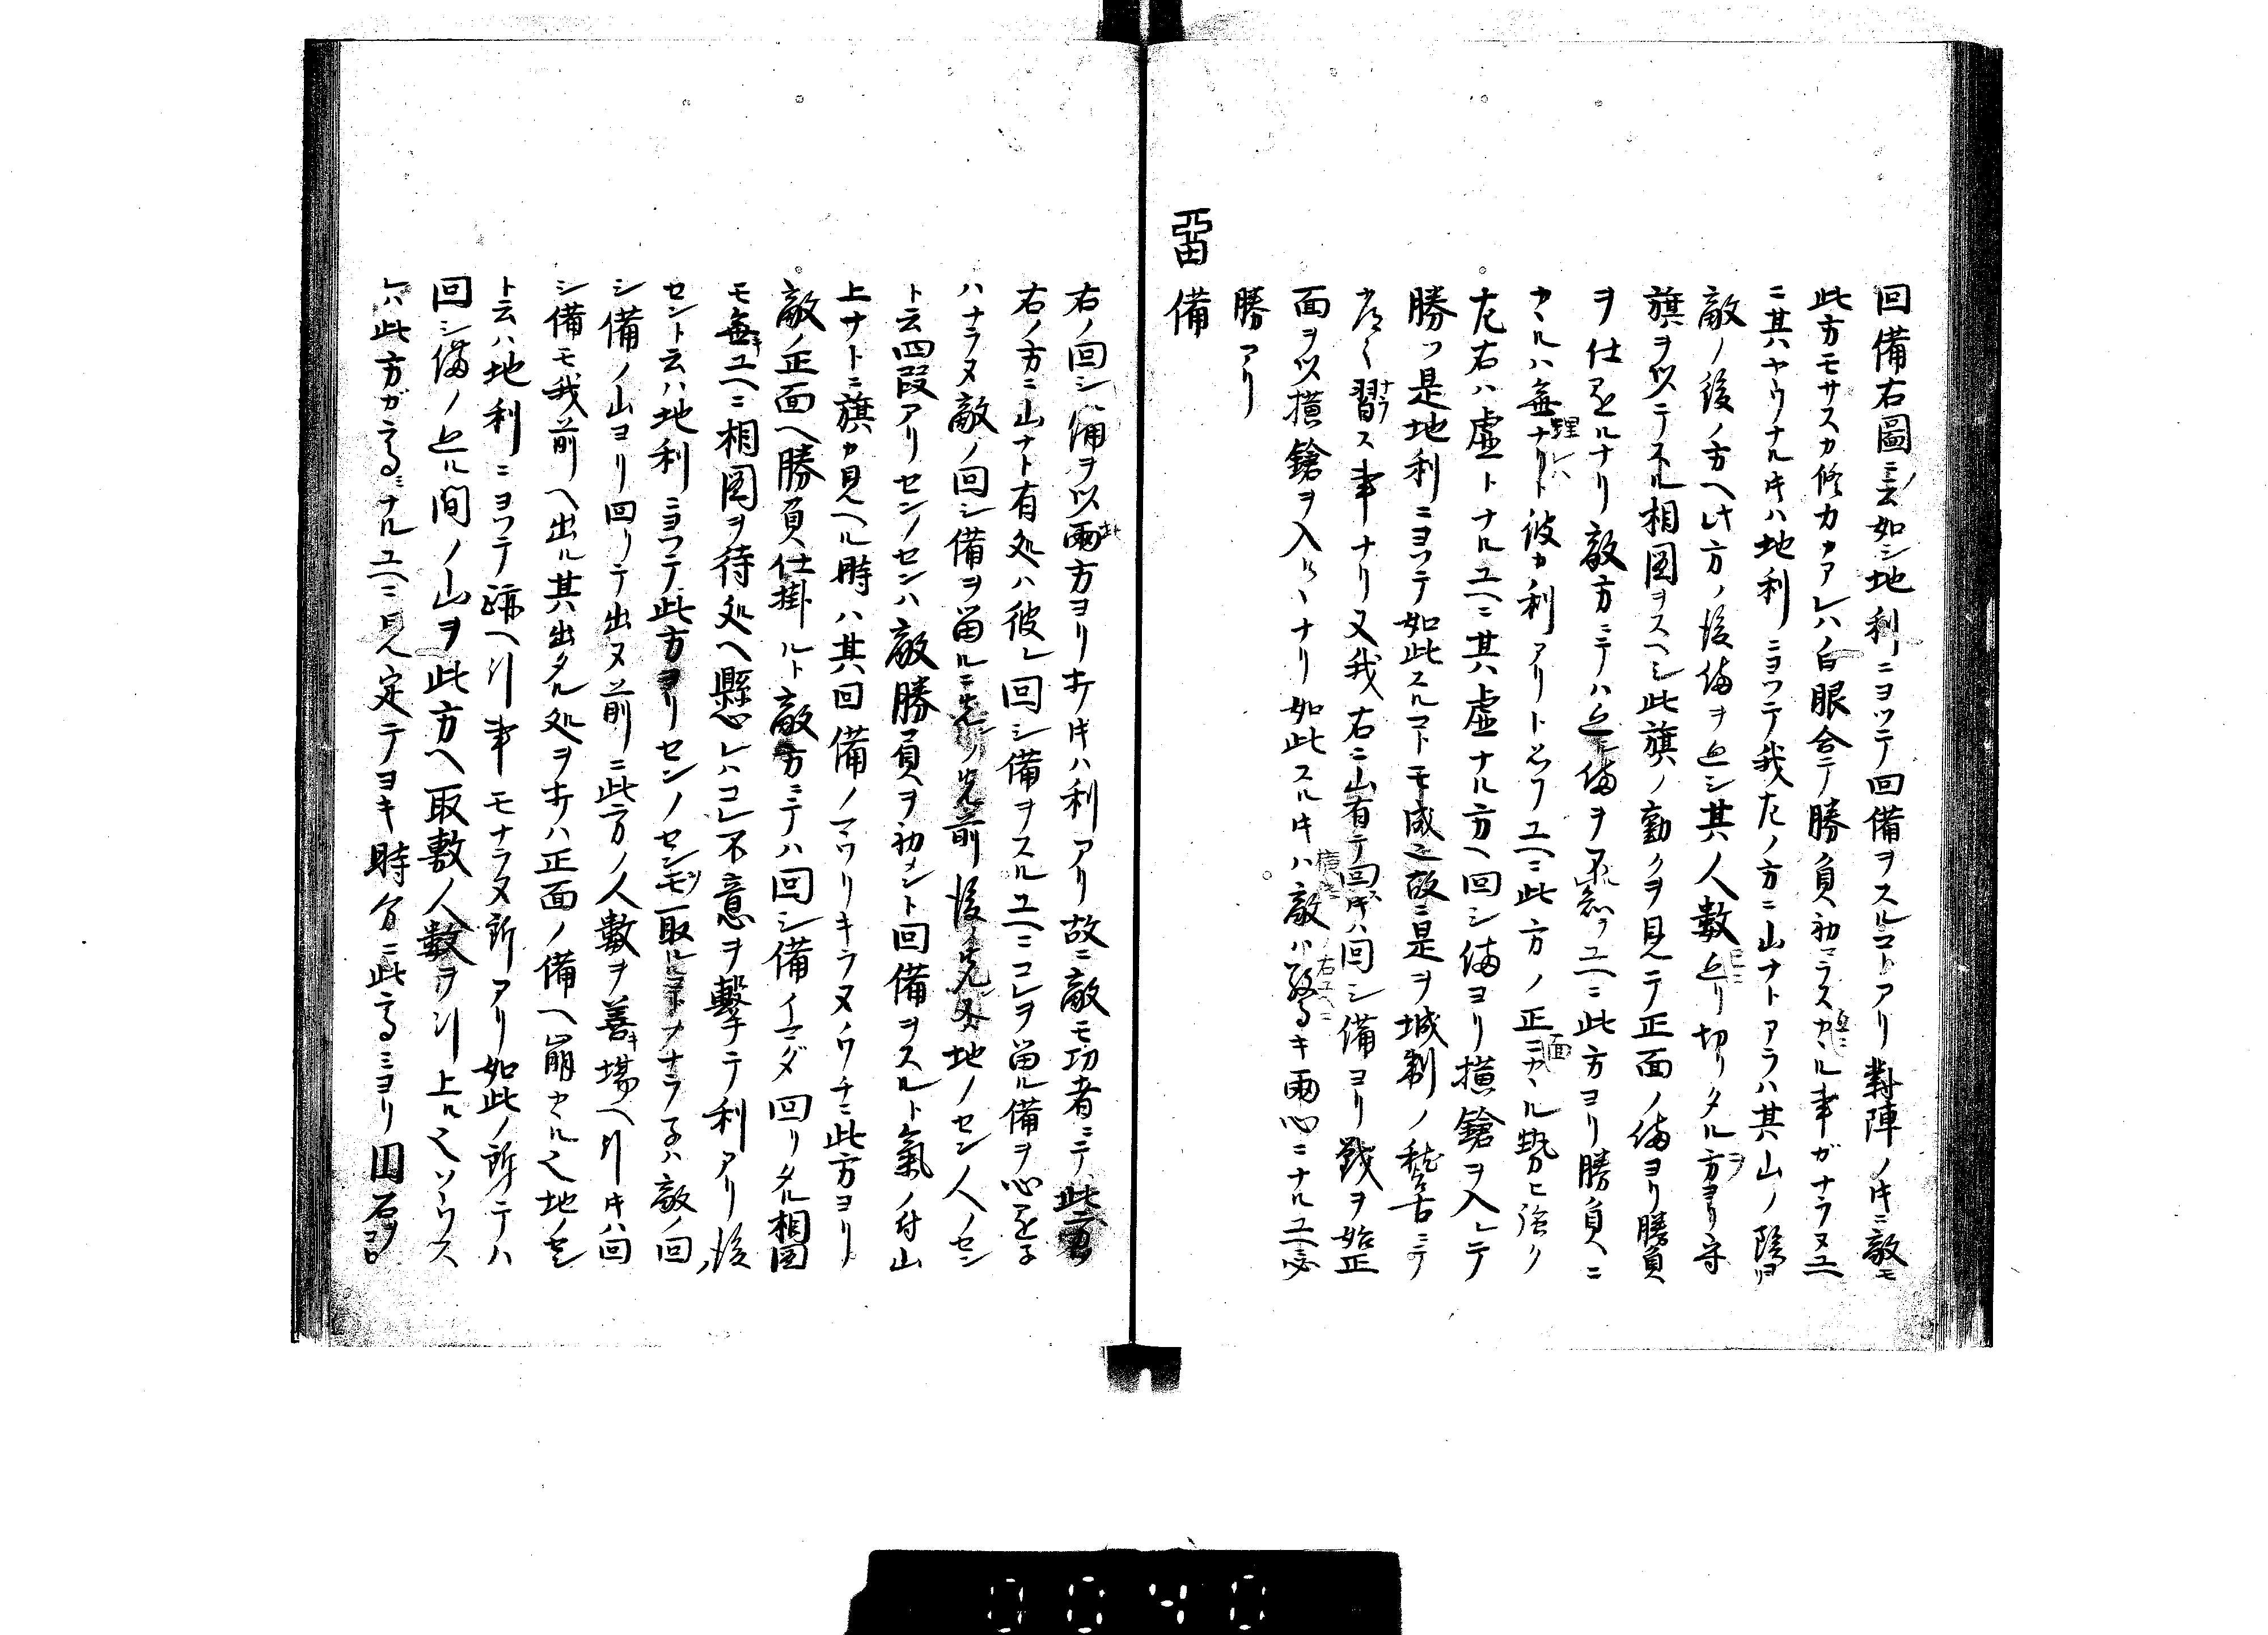 回備右圖ニ云如シ地利ニヨツテ回備ヲスルコトアリ對陣ノ時ニ敵モ
此方モサスカ修カアレハ白眼合テ勝負初ラス カヽル事ガナラヌユヘ
ニ其ハヤウナル時ハ地利ニヨツテ我左ノ方ニ山ナトアラハ其山ノ陰ヨリ
敵ノ後ノ方ヘ此方ノ後備ヲ廻シ其人数廻リ切リタル方ヨリ守
旗ヲ以テスル相図ヲスヘシ此旗ノ動クヲ見テ正面ノ備ヨリ勝負
ヲ仕ルナリ敵方ニテハ廻シ備ヲ不知ユヘニ此方ヨリ勝負ヘニ
カヽルハ無理ナリト彼カ利アリト思フユヘニ此方ノ正面ニカヽル勢ヒ強ク
左右ハ虚トナルユヘニ其虚ナル方ヘ回シ備ヨリ横鎗ヲ入レテ
勝ツ是地利ニヨツテ如此スルコトモ成之故ニ是ヲ城制ノ稽古ニテ
習ス事ナリ又我右ニ山有テ回時ハ回シ備ヨリ戦ヲ始正
面ヲ以横鎗ヲ入ルヽナリ如此スル時ハ敵ハ驚キ両心ニナルユヘ必
勝アリ
畾備
右ノ回シ備ヲ以両方ヨリ打時ハ利アリ故ニ敵モ功者ニテ此方
右ノ方ニ山ナト有処ハ彼レ回シ備ヲスルユヘニコレヲ畄ル備ヲ心
ハナラヌ敵ノ回シ備ヲ畄ルニ先前後ノ先又地ノセン人ノセン
ト云四段アリセンノセンハ敵勝負ヲ初メント回備ヲスルト氣ノ付山
上ナトニ旗カ見ヘル時ハ其回備ノマワリキラヌウチニ此方ヨリ
敵ノ正面ヘ勝負仕掛ルト敵方ニテハ回シ備イマダ回リタル相図
モ無ユヘニ相図ヲ待処ヘ懸レハコレ不意ヲ撃テ利アリ後ノ
セント云ハ地利ニヨツテ此方ヨリセンノセンモ取ルコトナラネハ敵ノ回
シ備ノ山ヨリ回リテ出ヌ前ニ此方ノ人數ヲ善キ場ヘ引時ハ回
シ備モ我前ヘ出ル其出タル処ヲ打ハ正面ノ備ヘ崩カヽル之地ノセン
ト云ハ地利ニヨツテ跡ヘ引事モナラヌ所アリ如此ノ所ニテハ
回シ備ノ廻ル間ノ山ヲ此方ヘ取敷人數ヲ引上ル之ソウス
レハ此方ガ高ミニナルユヘニ見定テヨキ時分ニ此高ミヨリ